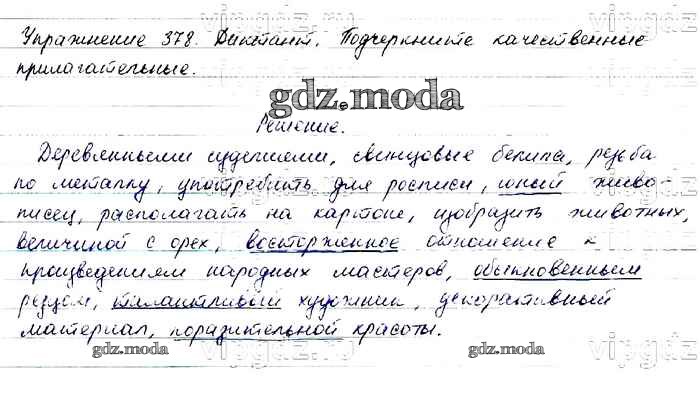 vipgdz.ru
Упражнение 378. Диктант. Подчеркните качественные
прилагательные.
gdz.moda
Решение.
Деревянными изделиями, свинцовые белила, резьба
по металлу, употребить для росписи, юный живо-
писец, располагать на картоне, изобразить животных,
величиной с орех, восторженное отношение к
произведениям народных мастеров, обыкновенным
резцом, талантливый художник, декоративный
материал, поразительной красоты.
gdz.moda gdz.moda